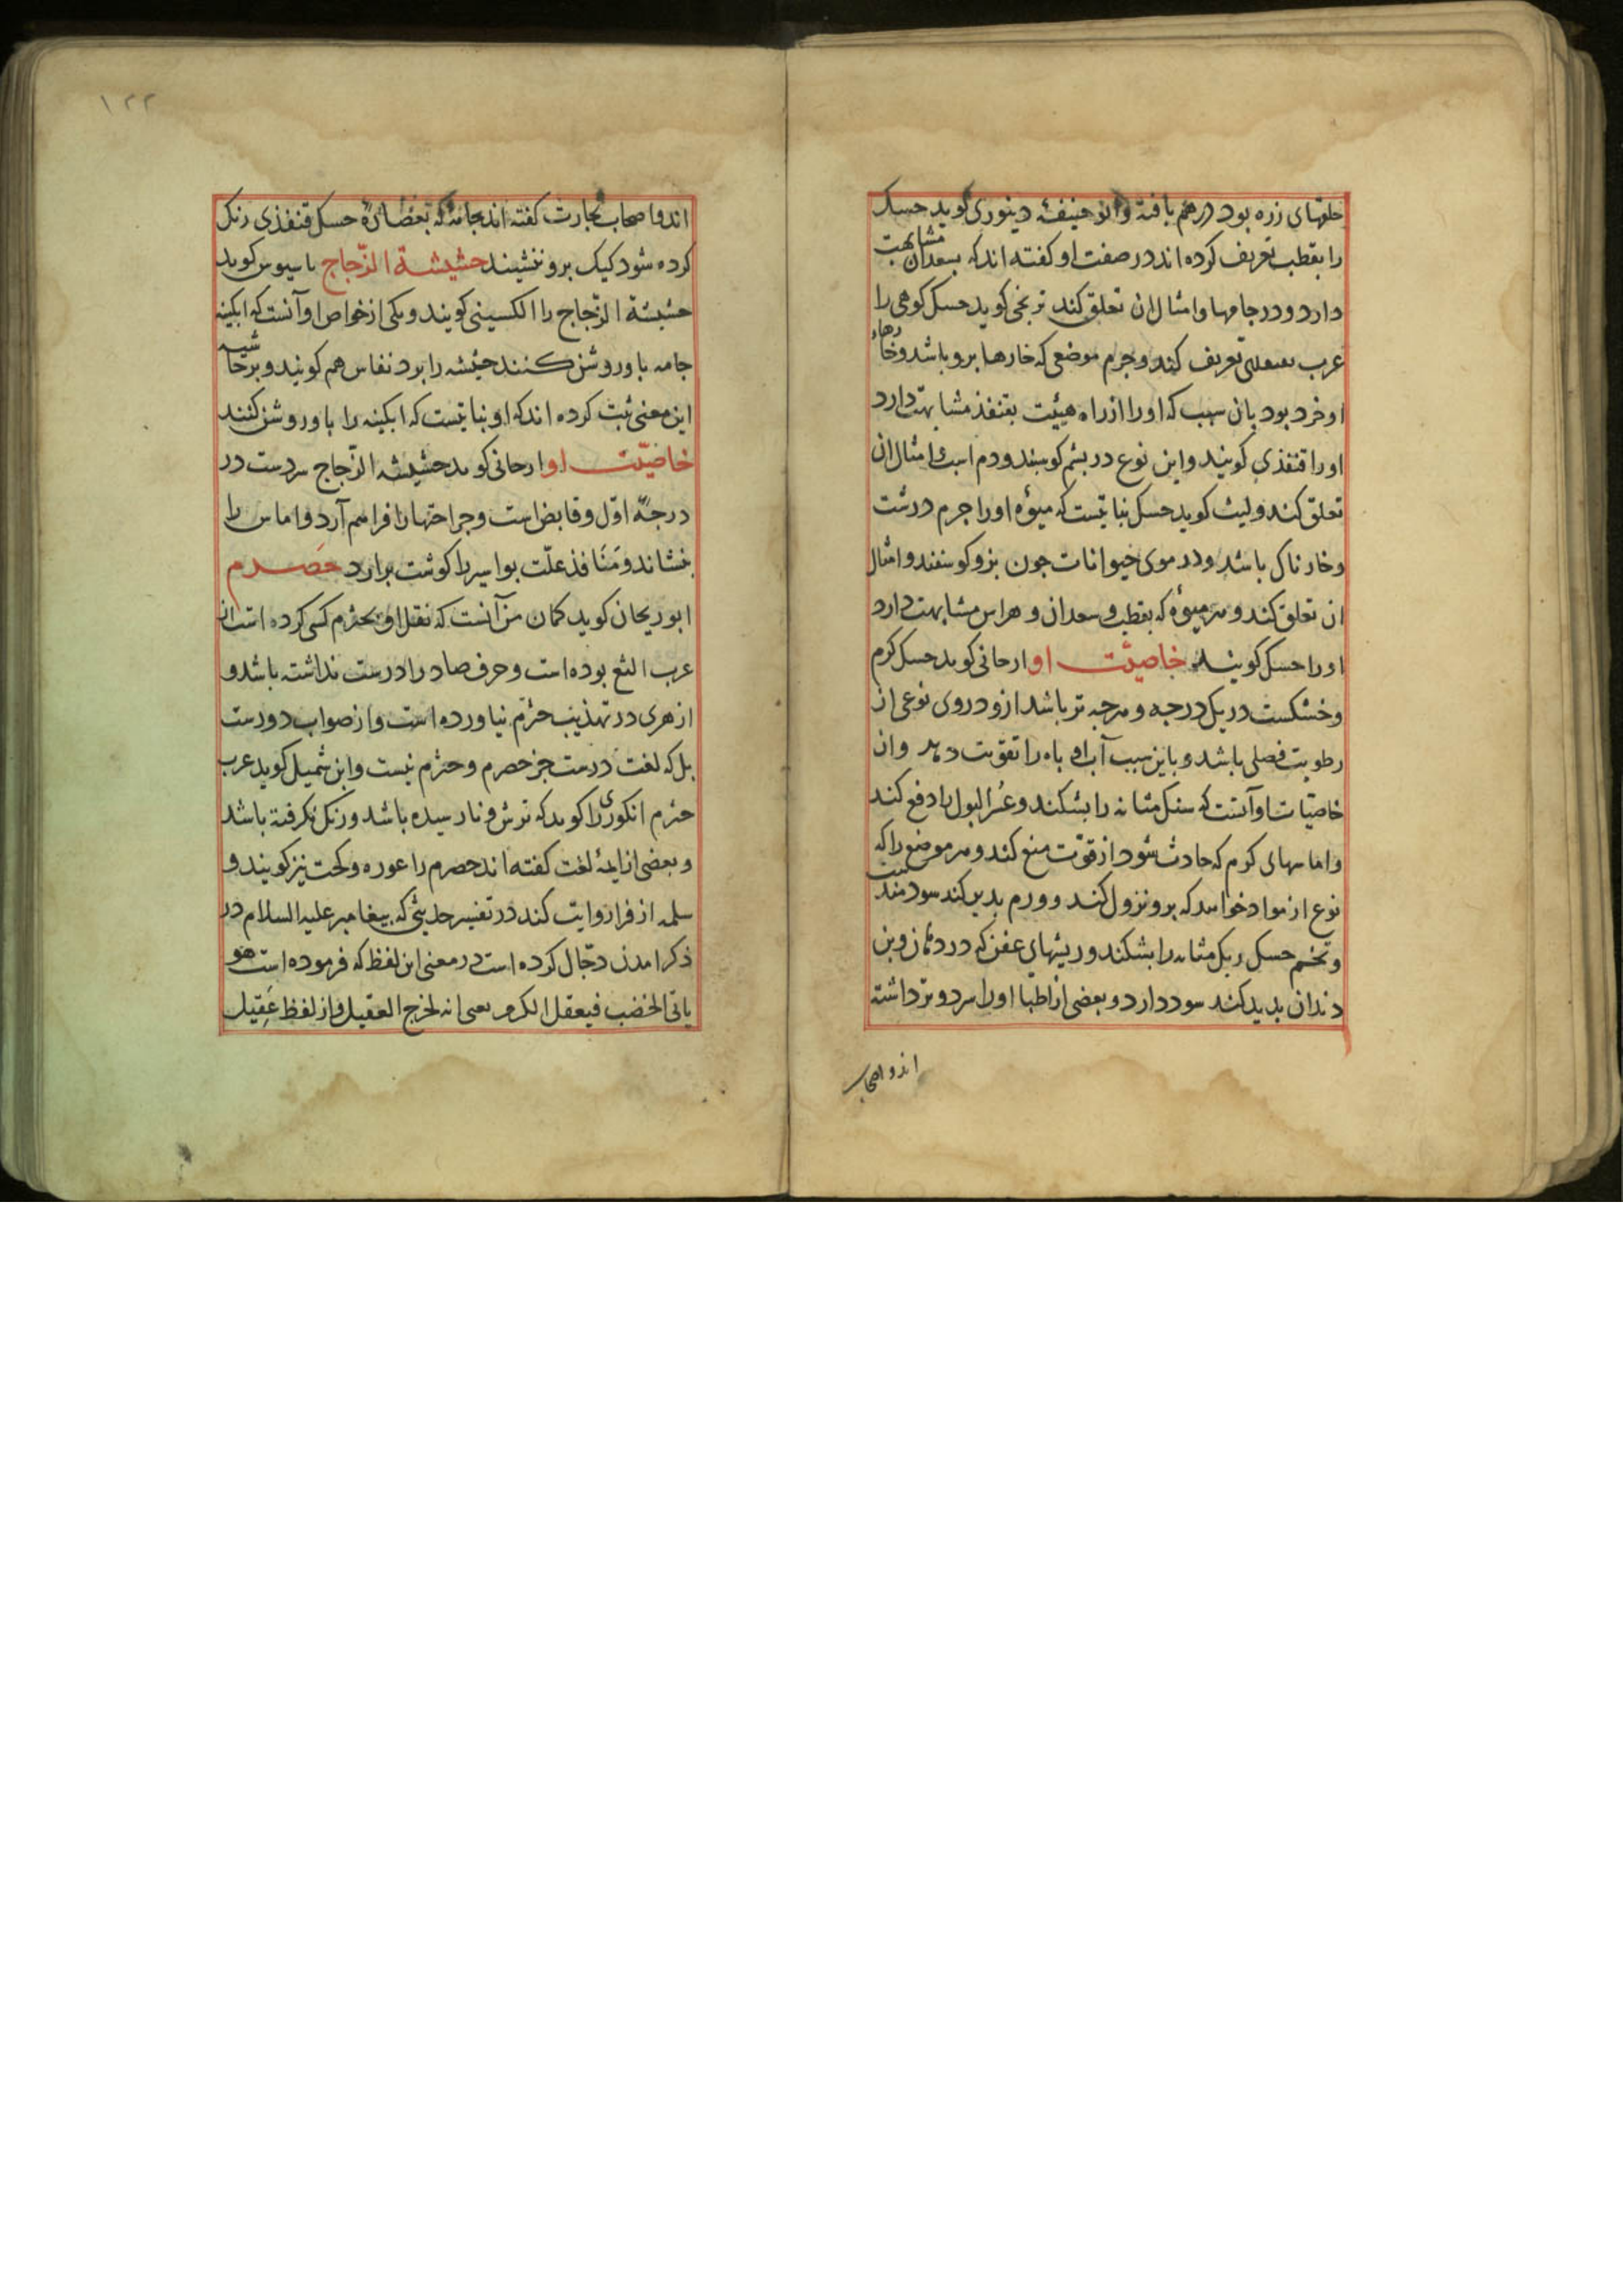 حلقهای زره بود درهم بافته وابو حنیفه دینوری کوید حسک
را بقطب تعریف کرده اند در صفت او کفته اند که بسعدان مشابهت
دارد ودر جامها وامثال ان تعلق کند ترنجی کوید حسک کوهی را
عرب تعریف کند وجرم موضعی که خارها برو باشد وخارهاء
او خرد بود بان سبب که او را از راه هیئت بقنفذ مشابهت دارد
او را قنفذی کویند واین نوع در پشم کوسبند ودم اسب وامثال ان
تعلق کند ولیث کوید حسک نباتیست که میؤه او را جرم درشت
وخارناک باشد ودر موی حیوانات جون بز وکوسفند وامثال
ان تعلق کند وهر میؤه که بقطب وسعدان وهراس مشابهت دارد
او را حسک کویند خاصیّت او ارجانی کوید حسک کرم
وخشکست در یک درجه وهرجه تر باشد ازو در وی نوعی از
رطوبت فضلی باشد وباین سبب آب او باه را تقویت دهد وان
خاصیّات او آنست که سنک مثانه را بشکند وعسر البول را دفع کند
واماسهای کرم که حادث شود از قوّت منع کند وهر موضع را که
نوع از مواد خواهد که برو نزول کند وورم بدید کند سودمند است
وتخم حسک ریک مثانه را بشکند وریشهای عفن که در دهان وبن
دندان بدید کند سود دارد وبعضی از اطبا او را سرد وتر داشته
اند واصحاب
۱۲۲
اند واصحاب تجارت کفته اند جامهٔ که بعصارهٔ حسک قنفذی رنک
کرده شود کیک برو ننشیند حشیشة الزّجاج باسیوس کوید
حشیشة الزّجاج را الکسینی کویند ویکی از خواص او آنست که ابکینه
جامه باو روشن کنند حشیشه را برد نفاس هم کویند وبر حاشیه
این معنی ثبت کرده اند که او نباتیست که ابکینه را باو روشن کنند
خاصیّت او ارجانی کوید حشیشه الزّجاج سردست در
درجهٔ اوّل وقابض است وجراحتها را فراهم آرد واماس را
بنشاند ومنافذ علّت بواسیر را کوشت برارد حصرم
ابو ریحان کوید کمان من آنست که نقل او بحثرم کسی کرده است از
عرب الثغ بوده است وحرف صاد را درست نداشته باشد و
ازهری در تهذیب حثرم نیاورده است واز صواب دورست
بل که لغت درست جز حصرم وحثرم نیست وابن شمیل کوید عرب
حثرم انکوری را کوید که ترش ونارسیده باشد ورنک نکرفته باشد
وبعضی از ایمهٔ لغت کفته اند حصرم را غوره وکحت نیز کویند و
سلمه از فرا روایت کند در تفسیر حدیثی که پیغامبر علیه السلام در
ذکر امدن دجّال کرده است در معنی این لفظ که فرموده است هو
یاتی الخضب فیعقل الکرم یعنی انه یخرج العقیل واز لفظ عَقِیل